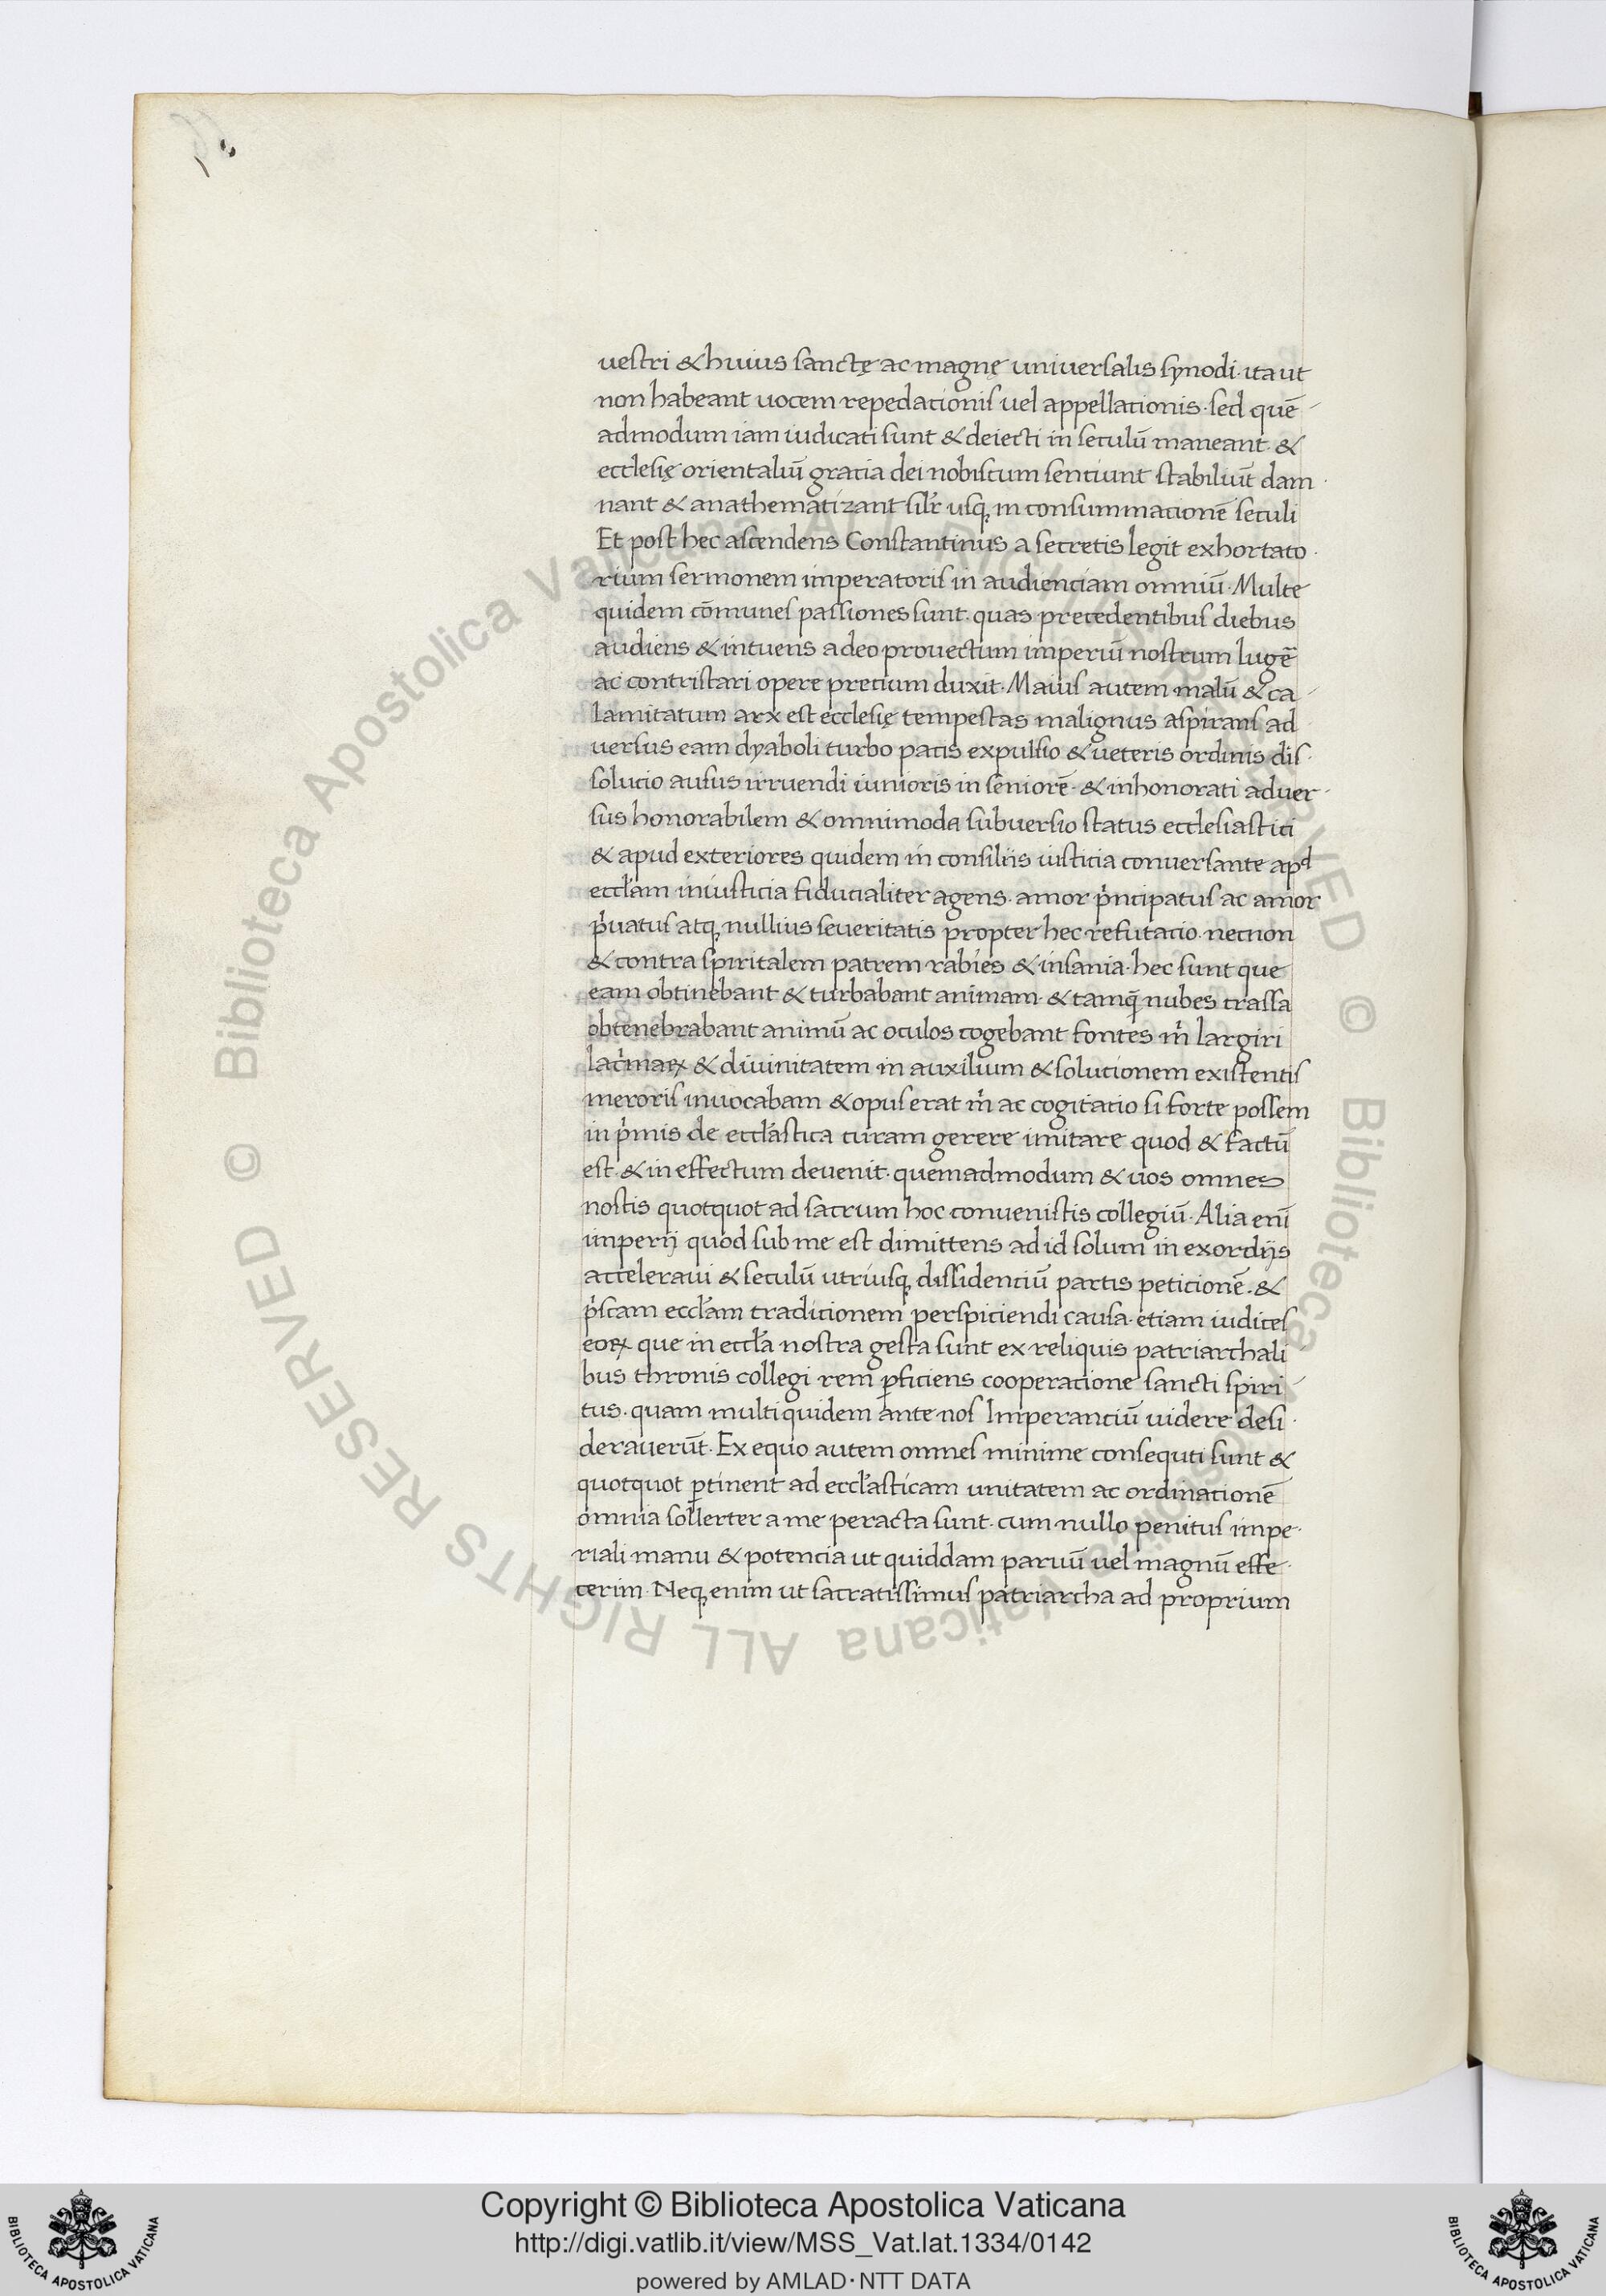 vestri & huius sanctę ac magnę universalis synodi. ita ut
non habeant uocem repedacionis uel appellationis. sed quē
admodum iam iudicati sunt & deiecti in seculū maneant. &
ecclesię orientaliū gracia dei nobiscum senciunt stabiliūt dam
nant & anathematizant silr̄ usq; in consummacionē seculi
Et post hec ascendens Constantinus a secretis legit exhortato
rium sermonem imperatoris in audienciam omniū. Multe
quidem cōmunes passiones sunt. quas precedentibus diebus
audiens & intuens a deo provectum imperiū nostrum lugē
ac contristari opere precium duxit. Maius autem malū & ca
lamitatum arx est ecclesię tempestas malignus aspirans ad
versus eam dyaboli turbo pacis expulsio & ueteris ordinis dis
solucio ausus irruendi iunioris in seniorē. & inhonorati adver
sus honorabilem & omnimoda subversio status ecclesiastici
& apud exteriores quidem in consiliis iusticia conversante apd
eccl̄am iniusticia fiducialiter agens. amor p̍ncipatus ac amor
p̍vatus atq; nullius severitatis propter hec refutacio. necnon
& contra spiritalem patrem rabies & insania. hec sunt que
eam obtinebant & turbabant animam. & tamq̄ nubes crassa
obtenebrabant animū ac oculos cogebant fontes m̍ largiri
lac̍maꝝ & divinitatem in auxilium & solucionem existentis
meroris invocabam & opus erat m̍ ac cogitatio si forte possem
in p̍mis de eccl̄astica curam gerere imitare quod & factū
est. & in effectum devenit. quemadmodum & uos omnes
nostis quotquot ad sacrum hoc convenistis collegiū. Alia enī
imperij quod sub me est dimittens ad id solum in exordijs
acceleravi & seculū utriusq; dissidenciū partis peticionē. &
p̍scam eccl̄am tradicionem perspiciendi causa. etiam iudices
eoꝝ que in eccl̄a nostra gesta sunt ex reliquis patriarchali
bus thronis collegi rem ꝑficiens cooperacione sancti spiri
tus. quam multi quidem ante nos Imperanciū uidere desi
deraverūt. Ex equo autem omnes minime consequti sunt &
quotquot ꝑtinent ad eccl̄asticam unitatem ac ordinationē
omnia sollerter a me peracta sunt. cum nullo penitus impe
riali manu & potencia ut quiddam parvū vel magnū effe
cerim. Neq; enim ut sacratissimus patriarcha ad proprium
© Biblioteca Apostolica Vaticana ALL RIGHTS RESERVED
© Biblioteca Apostolica Vaticana ALL RIGHTS RESERVED
Copyright © Biblioteca Apostolica Vaticana
http://digi.vatlib.it/view/MSS_Vat.lat.1334/0142
powered by AMLAD·NTT DATA
BIBLIOTECA APOSTOLICA VATICANA
BIBLIOTECA APOSTOLICA VATICANA